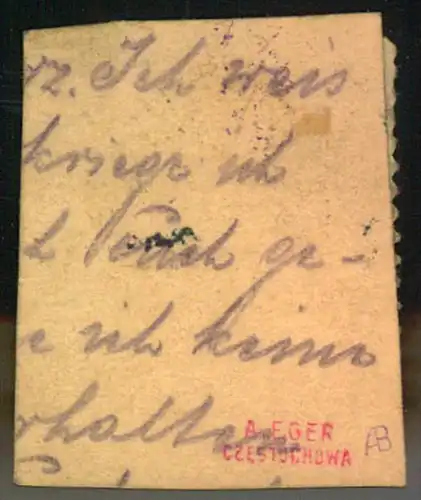 rz. Ich weis
kriege ich
ge-
e ich keine
rhalten
A. EGER
CZESTOCHOWA
AB